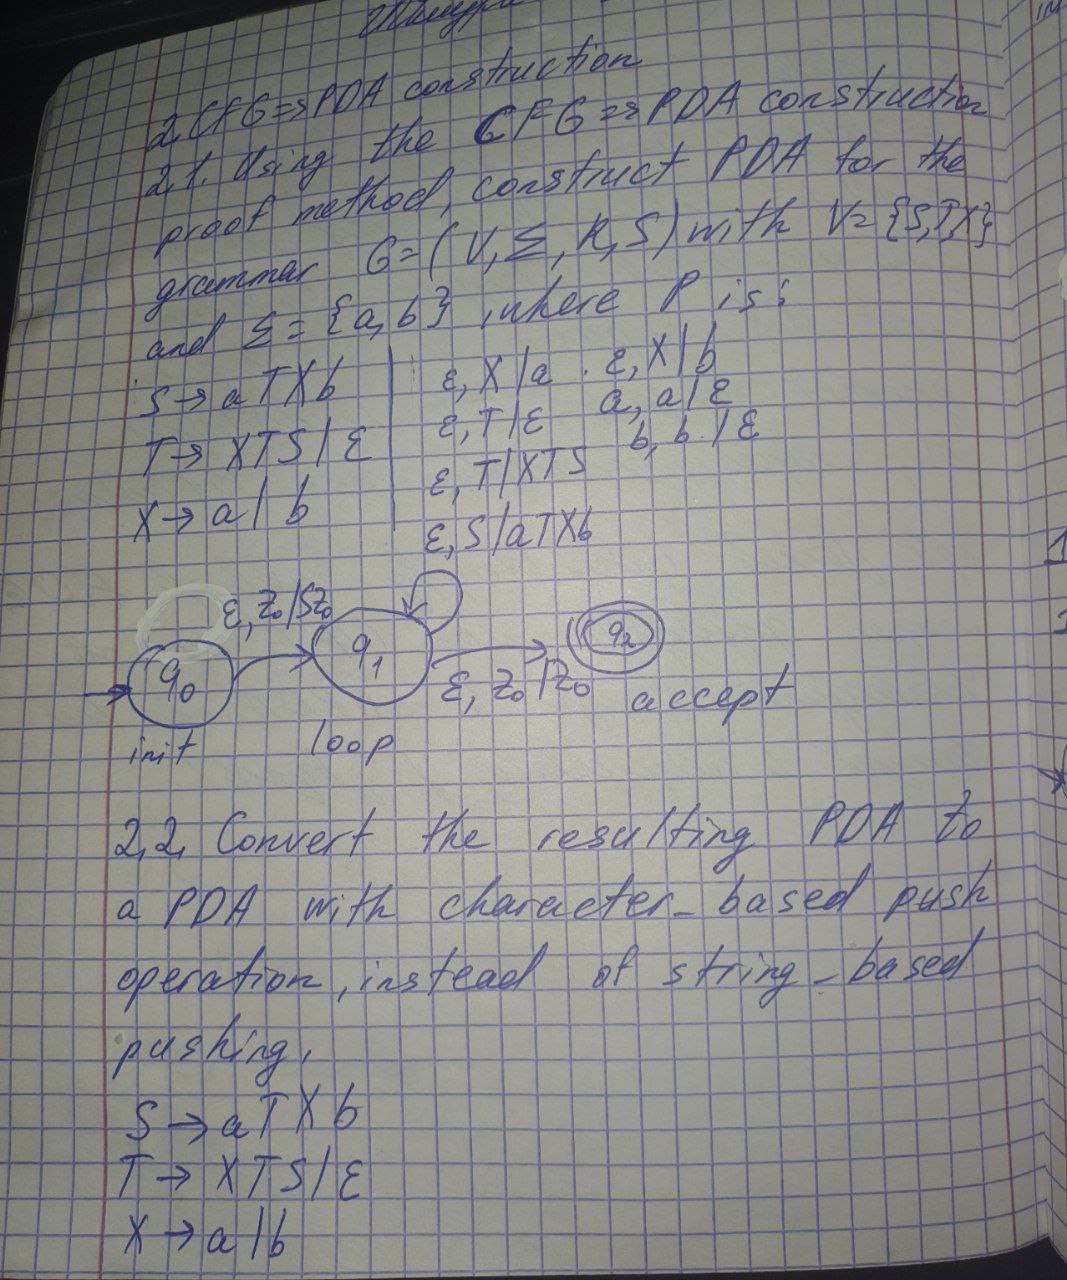 2 CFG => PDA construction
2.1. Using the CFG => PDA construction
proof method, construct PDA for the
grammar G = (V, Σ, R, S) with V = {S,T,X}
and Σ = {a, b}, where P is:
S → aTXb
T → XTS | ε
X → a | b
ε, X/a . ε, X/b
ε, T/ε a, a/ε
b, b/ε
ε, T/XTS
ε, S/aTXb
ε, Z₀/SZ₀
q₀
q₁
q₂
ε, Z₀/Z₀
accept
init
loop
2,2, Convert the resulting PDA to
a PDA with character-based push
operation, instead of string-based
pushing.
S → aTXb
T → XTS | ε
X → a | b